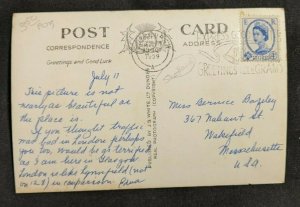 POST CARD
CORRESPONDENCE
ADDRESS
Greetings and Good Luck
1959
GREETINGS TELEGRAM
July 17
This picture is not
nearly as beautiful as
the place is.
If you thought traffic
was bad in London perhaps
you too, would be as terrified
as I am here in Glasgow
London is like Lynnfield (not
on 128) in comparison.
Miss Bernice Bazeley
367 Nahant St
Wakefield
Massachusetts
U.S.A.